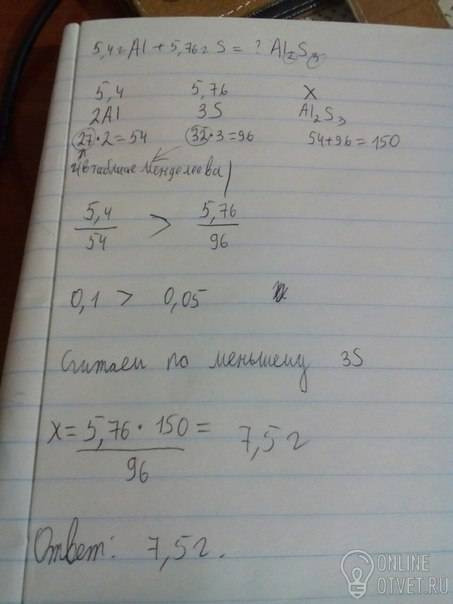 5,4г Al + 5,76г S = ? Al2S3
5,4 5,76 X
2Al 3S Al2S3
27·2=54 32·3=96 54+96=150
в таблице Менделеева
5,4 / 54 > 5,76 / 96
0,1 > 0,05
Считаем по меньшему 3S
X = 5,76 · 150 / 96 = 7,5г
Ответ: 7,5г.
ONLINE
OTVET.RU